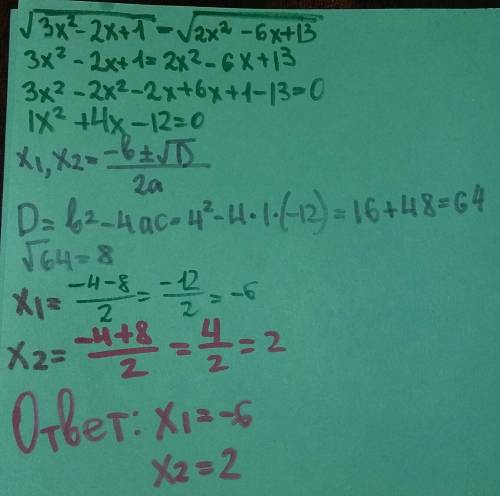 √3x²-2x+1 = √2x²-6x+13
3x²-2x+1=2x²-6x+13
3x²-2x²-2x+6x+1-13=0
1x²+4x-12=0
x₁,x₂= -b±√D / 2a
D=b²-4ac=4²-4·1·(-12)=16+48=64
√64=8
x₁= -4-8 / 2 = -12 / 2 = -6
x₂= -4+8 / 2 = 4 / 2 = 2
Ответ: x₁=-6
x₂=2